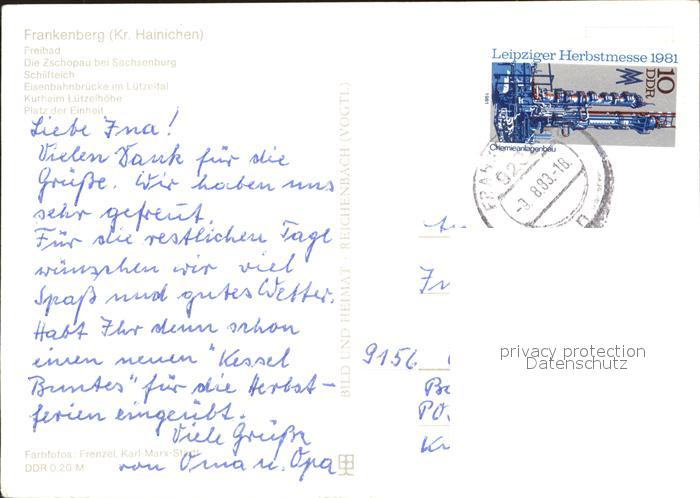 Frankenberg (Kr. Hainichen)
Freibad
Die Zschopau bei Sachsenburg
Schilfteich
Eisenbahnbrücke im Lützeltal
Kurheim Lützelhöhe
Platz der Einheit
Liebe Ina!
Vielen Dank für die
Grüße. Wir haben uns
sehr gefreut.
Für die restlichen Tage
wünschen wir viel
Spaß und gutes Wetter.
Habt Ihr denn schon
einen neuen "Kessel
Buntes" für die Herbst-
ferien eingeübt.
Viele Grüße
von Oma u. Opa
Farbfotos: Frenzel, Karl-Marx-Stadt
DDR 0,20 M
BILD UND HEIMAT · REICHENBACH (VOGTL)
Leipziger Herbstmesse 1981
10
DDR
1981
Chemieanlagenbau
-9.8.83.-18
9156
privacy protection
Datenschutz